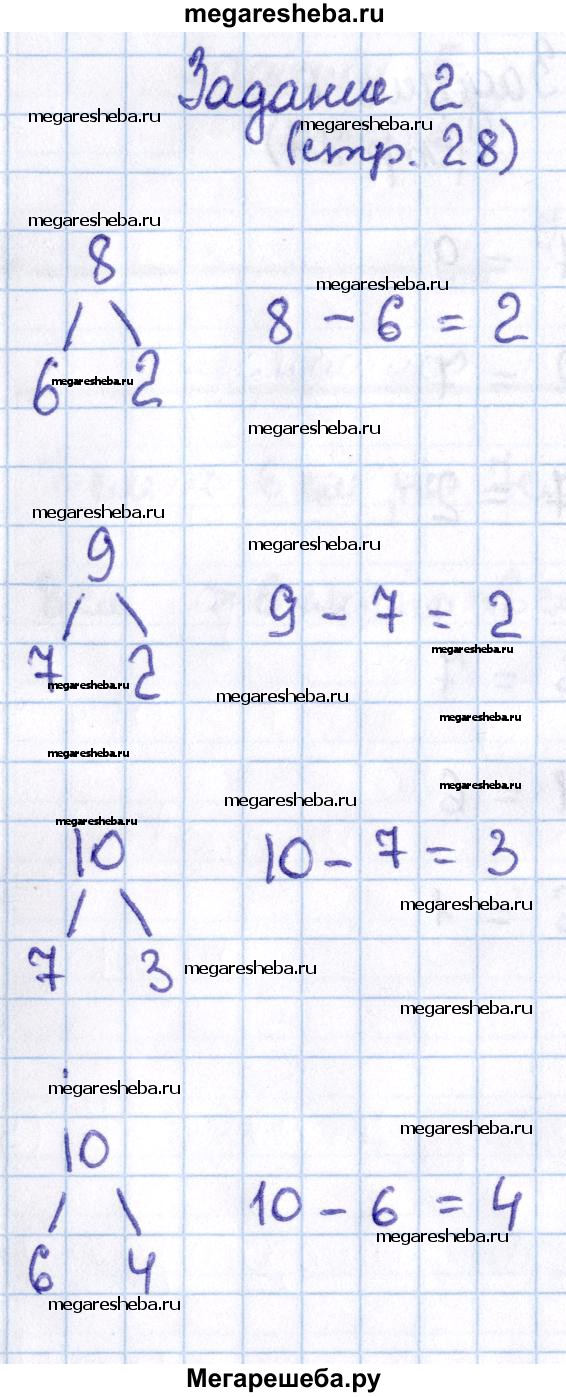 megaresheba.ru
Задание 2
megaresheba.ru
megaresheba.ru
(стр. 28)
megaresheba.ru
8
megaresheba.ru
8 - 6 = 2
6 2
megaresheba.ru
megaresheba.ru
megaresheba.ru
megaresheba.ru
9
9 - 7 = 2
megaresheba.ru
7 2
megaresheba.ru
megaresheba.ru
megaresheba.ru
megaresheba.ru
megaresheba.ru
megaresheba.ru
megaresheba.ru
10
10 - 7 = 3
megaresheba.ru
7 3
megaresheba.ru
megaresheba.ru
megaresheba.ru
megaresheba.ru
10
10 - 6 = 4
megaresheba.ru
6 4
megaresheba.ru
Мегарешеба.ру